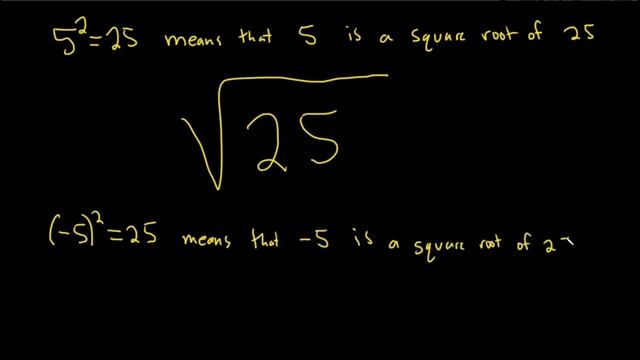 5² = 25 means that 5 is a square root of 25
√25
(-5)² = 25 means that -5 is a square root of 2